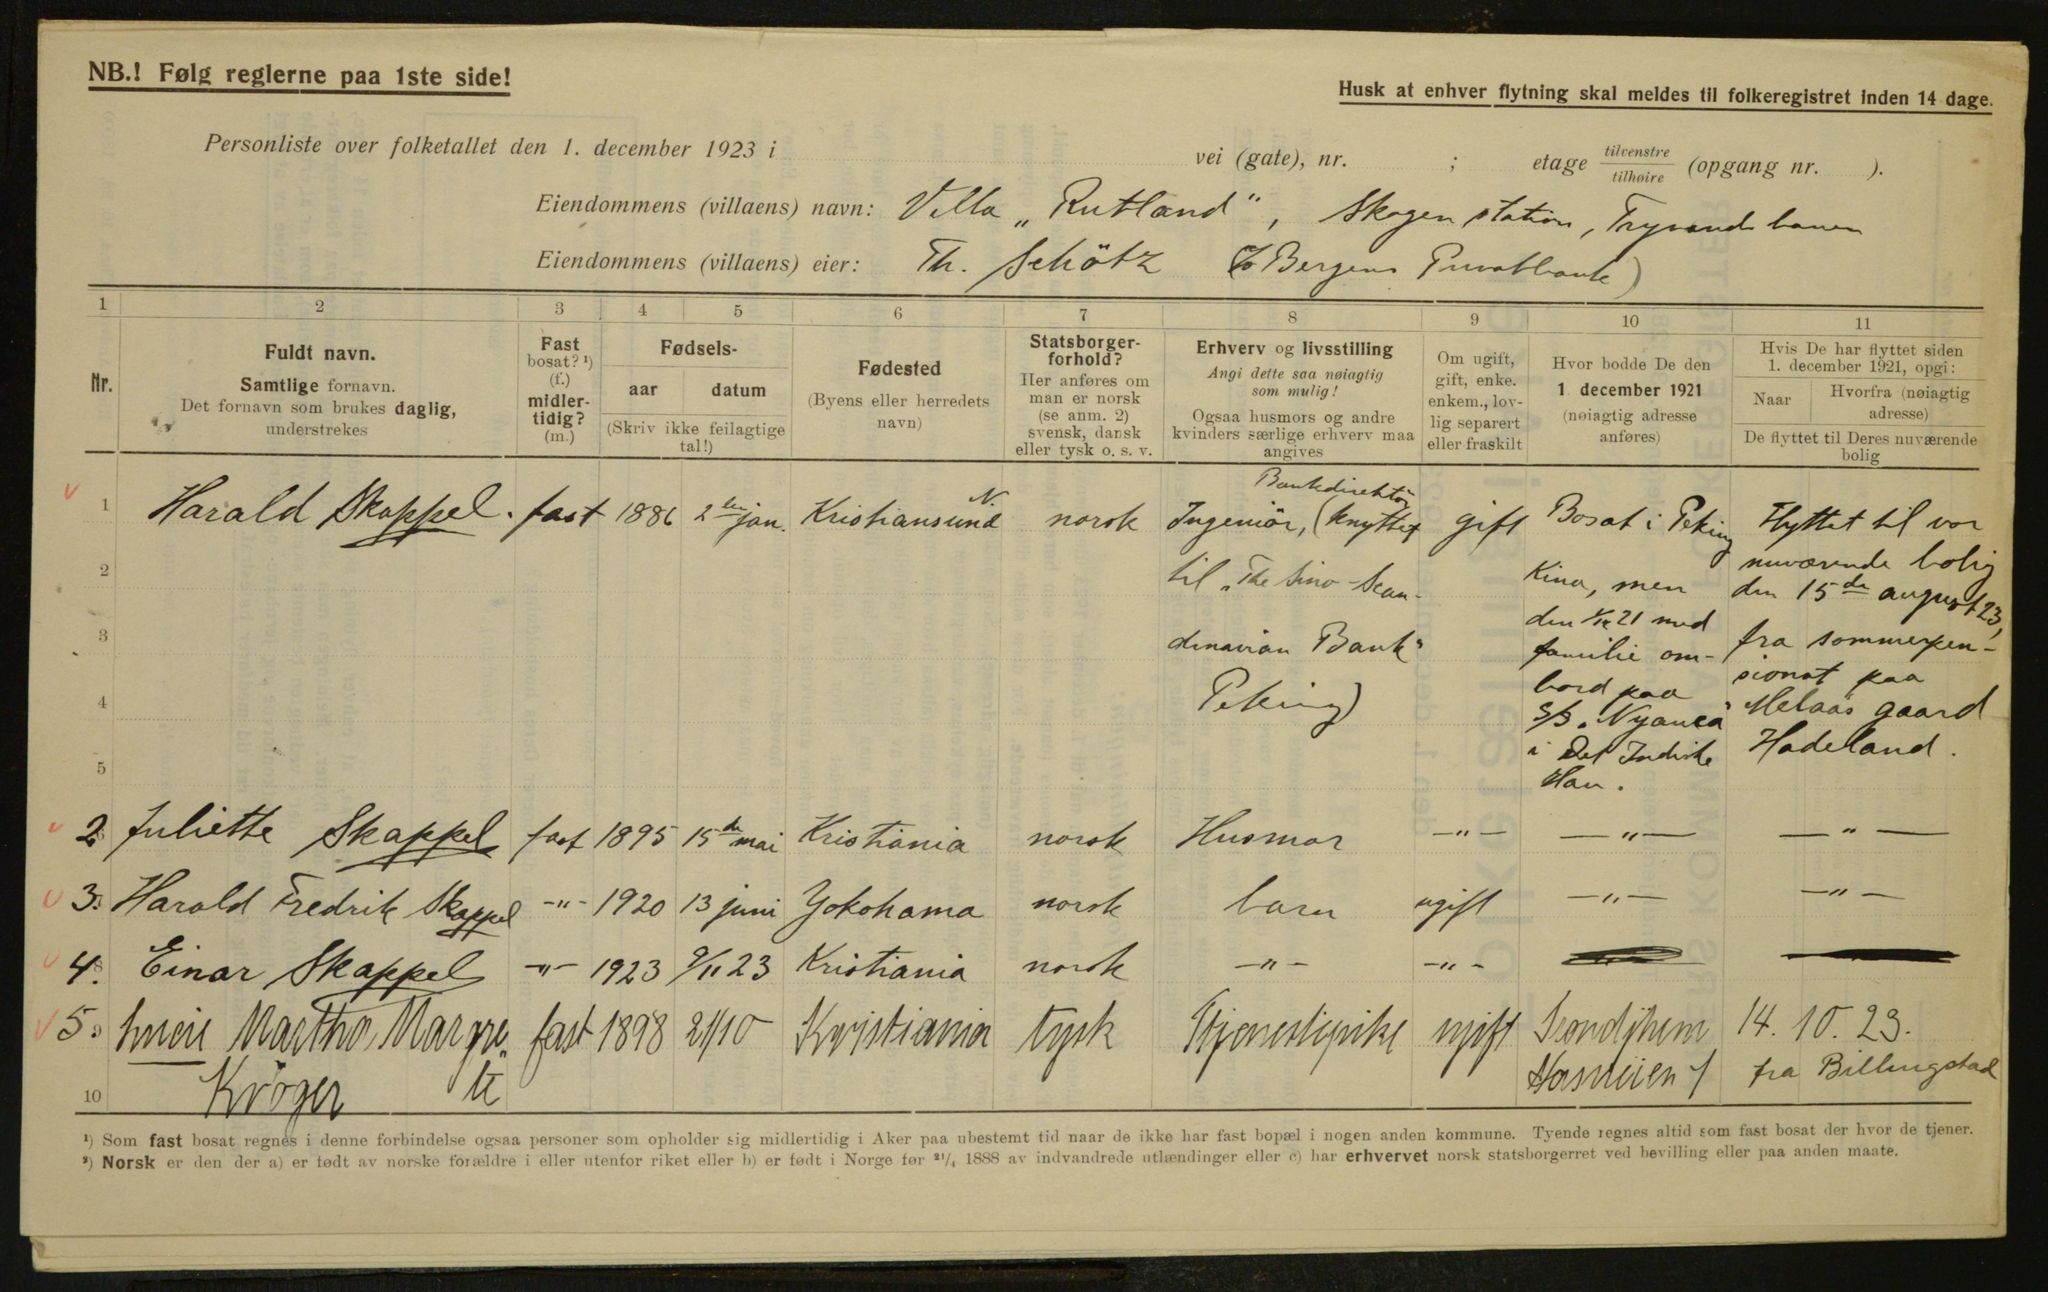 NB.! Følg reglerne paa 1ste side!
Husk at enhver flytning skal meldes til folkeregistret inden 14 dage.
Personliste over folketallet den 1. december 1923 i vei (gate), nr. ; etage tilvenstre/tilhøire (opgang nr. ).
Eiendommens (villaens) navn: Villa „Rutland“, Skogen station, Tryvandsbanen
Eiendommens (villaens) eier: Th. Schötz (Bergens Privatbank)
1 2 3 4 5 6 7 8 9 10 11
Nr.
Fuldt navn.
Samtlige fornavn.
Det fornavn som brukes daglig,
understrekes
Fast
bosat? ¹)
(f.)
midler-
tidig?
(m.)
Fødsels-
aar datum
(Skriv ikke feilagtige
tal!)
Fødested
(Byens eller herredets
navn)
Statsborger-
forhold?
Her anføres om
man er norsk
(se anm. 2)
svensk, dansk
eller tysk o. s. v.
Erhverv og livsstilling
Angi dette saa nøiagtig
som mulig!
Ogsaa husmors og andre
kvinders særlige erhverv maa
angives
Om ugift,
gift, enke.
enkem., lov-
lig separert
eller fraskilt
Hvor bodde De den
1. december 1921
(nøiagtig adresse
anføres)
Hvis De har flyttet siden
1. december 1921, opgi:
Naar
Hvorfra (nøiagtig
adresse)
De flyttet til Deres nuværende
bolig
1 Harald Skappel. fast 1886 2den jan. Kristiansund N. norsk
Bankdirektör
Ingeniör, (knyttet
til „The Sino-Scan-
dinavian Bank“
Peking)
gift
Bosat i Peking
Kina, men
den 1/12 21 med
familie om-
bord paa
S/S „Nyanza“
i Det Indiske
Hav.
Flyttet til vor
nuværende bolig
den 15de august 23,
fra sommerpen-
sionat paa
Melaas gaard
Hadeland.
2
3
4
5
2 Juliette Skappel fast 1895 15de mai Kristiania norsk Husmor —„— —„— —„—
3. Harald Fredrik Skappel -„- 1920 13 juni Yokohama norsk barn ugift —„— —„—
4. Einar Skappel -„- 1923 9/11 23 Kristiania norsk -„- -„-
5. Lucie Martha Margre- fast 1898 21/10 Kristiania tysk Tjenestepike ugift Trondhjem 14. 10. 23.
10 Kröger te fra Billingstad
¹) Som fast bosat regnes i denne forbindelse ogsaa personer som opholder sig midlertidig i Aker paa ubestemt tid naar de ikke har fast bopæl i nogen anden kommune. Tyende regnes altid som fast bosat der hvor de tjener.
²) Norsk er den der a) er født av norske forældre i eller utenfor riket eller b) er født i Norge før ²¹/₄ 1888 av indvandrede utlændinger eller c) har erhvervet norsk statsborgerret ved bevilling eller paa anden maate.